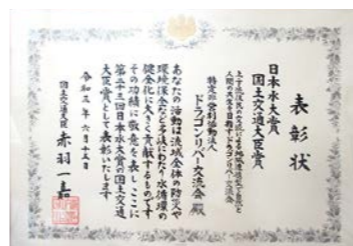 表彰状
日本水大賞
国土交通大臣賞
特定非営利活動法人
ドラゴンリバー交流会 殿
あなたの活動は流域全体の防災や
環境保全など多岐にわたり水循環の
健全化に大きく貢献するものです
その功績に敬意を表しここに
第二十三回日本水大賞の国土交通
大臣賞として表彰いたします
令和三年六月十五日
国土交通大臣 赤羽一嘉